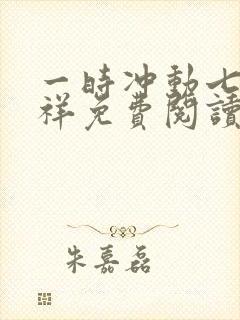 一時冲動七
祥免費閱讀
朱嘉磊